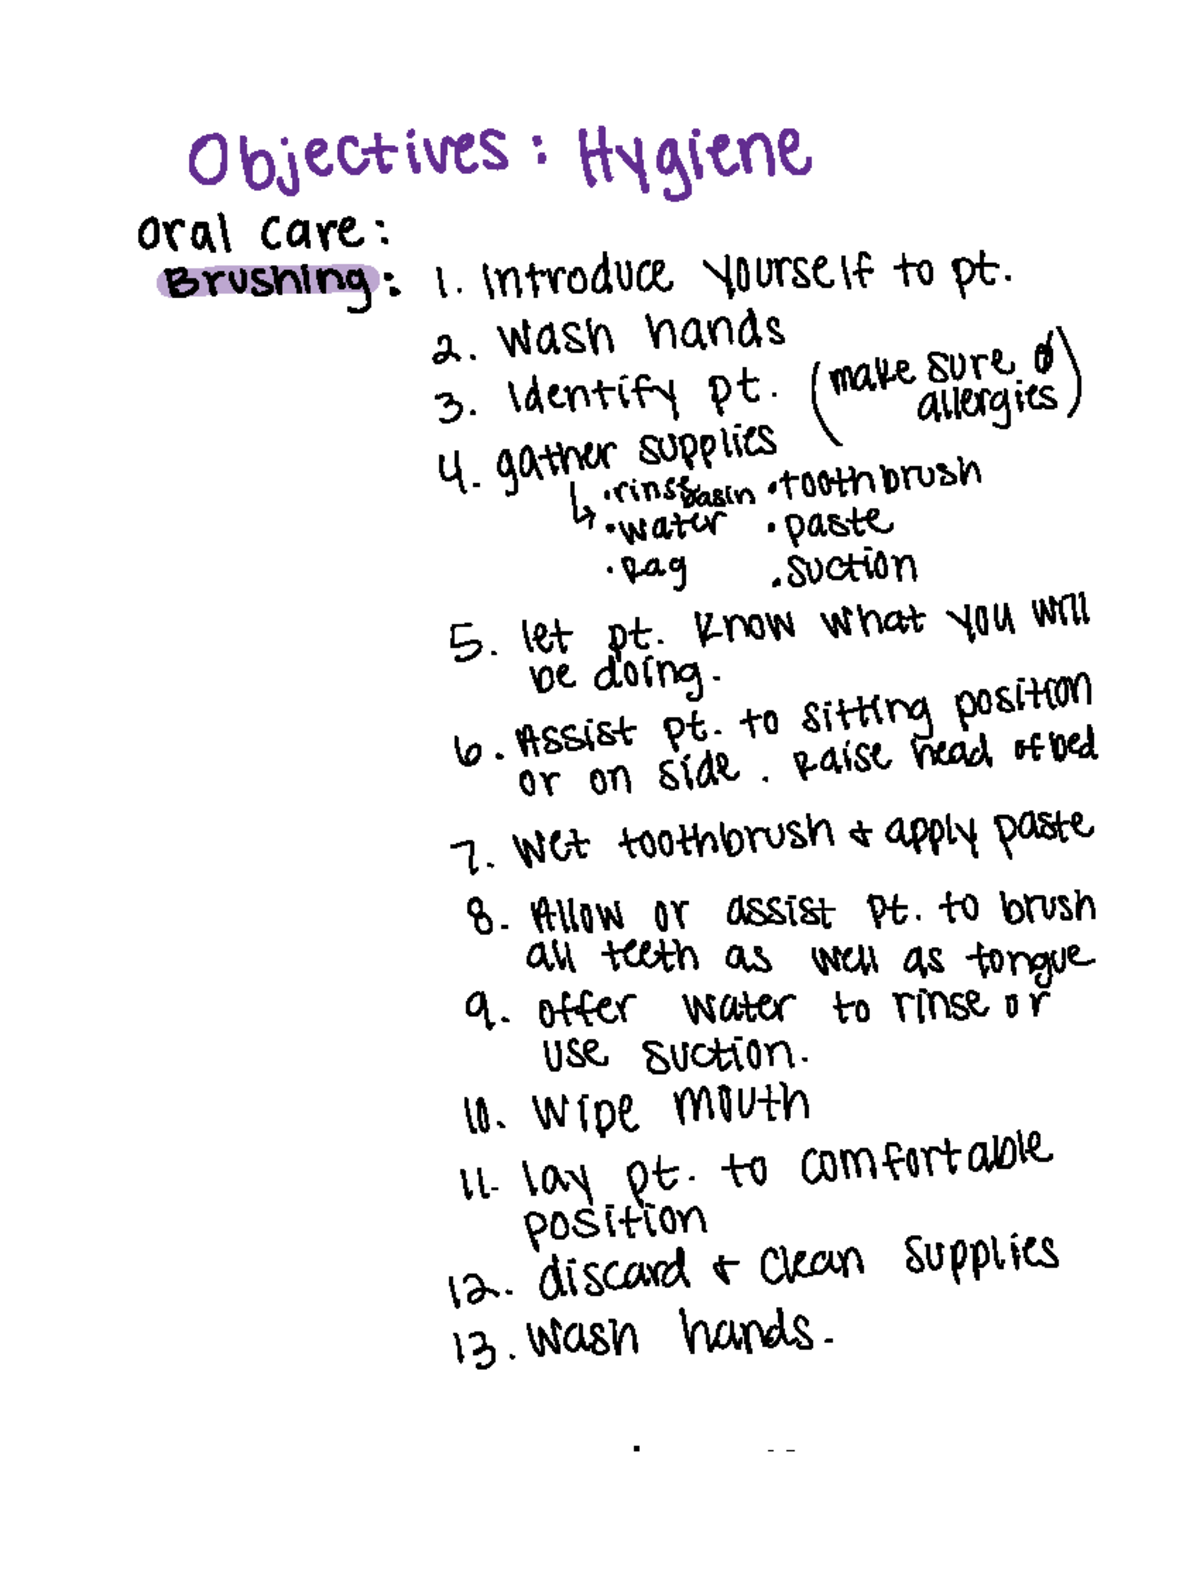 Objectives: Hygiene
Oral care:
Brushing: 1. Introduce yourself to pt.
2. Wash hands
3. Identify pt. (make sure ∅
allergies)
4. gather supplies
↳ •rinse basin •toothbrush
•water •paste
•Rag •suction
5. let pt. know what you will
be doing.
6. Assist pt. to sitting position
or on side. Raise head of bed
7. Wet toothbrush + apply paste
8. Allow or assist pt. to brush
all teeth as well as tongue
9. offer water to rinse or
use suction.
10. Wipe mouth
11. lay pt. to comfortable
position
12. discard + clean supplies
13. Wash hands.